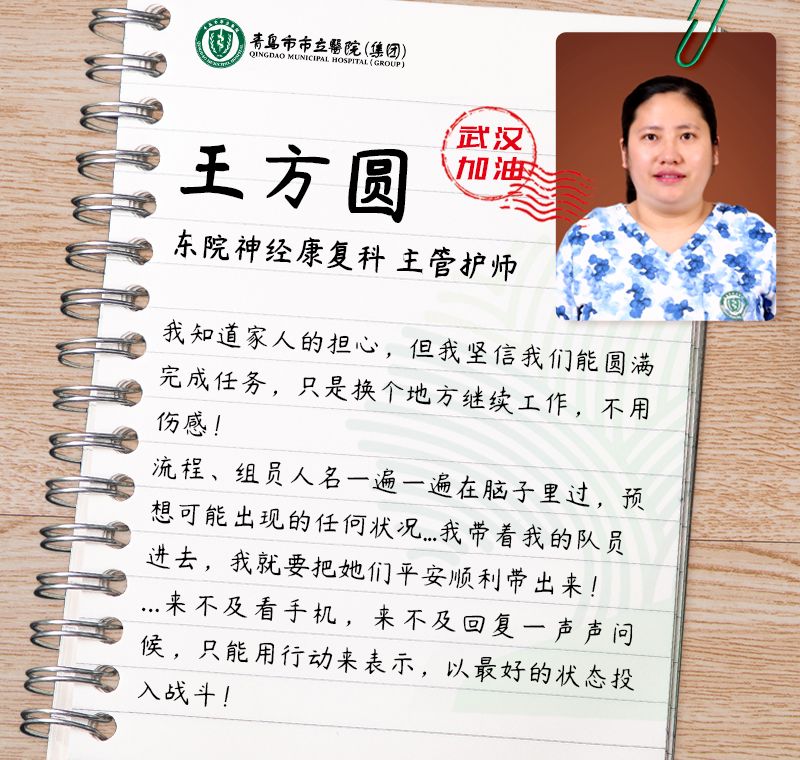 青岛市市立醫院(集团)
QINGDAO MUNICIPAL HOSPITAL(GROUP)
武汉
加油
王方圆
东院神经康复科 主管护师
我知道家人的担心，但我坚信我们能圆满
完成任务，只是换个地方继续工作，不用
伤感！
流程、组员人名一遍一遍在脑子里过，预
想可能出现的任何状况...我带着我的队员
进去，我就要把她们平安顺利带出来！
...来不及看手机，来不及回复一声声问
候，只能用行动来表示，以最好的状态投
入战斗！